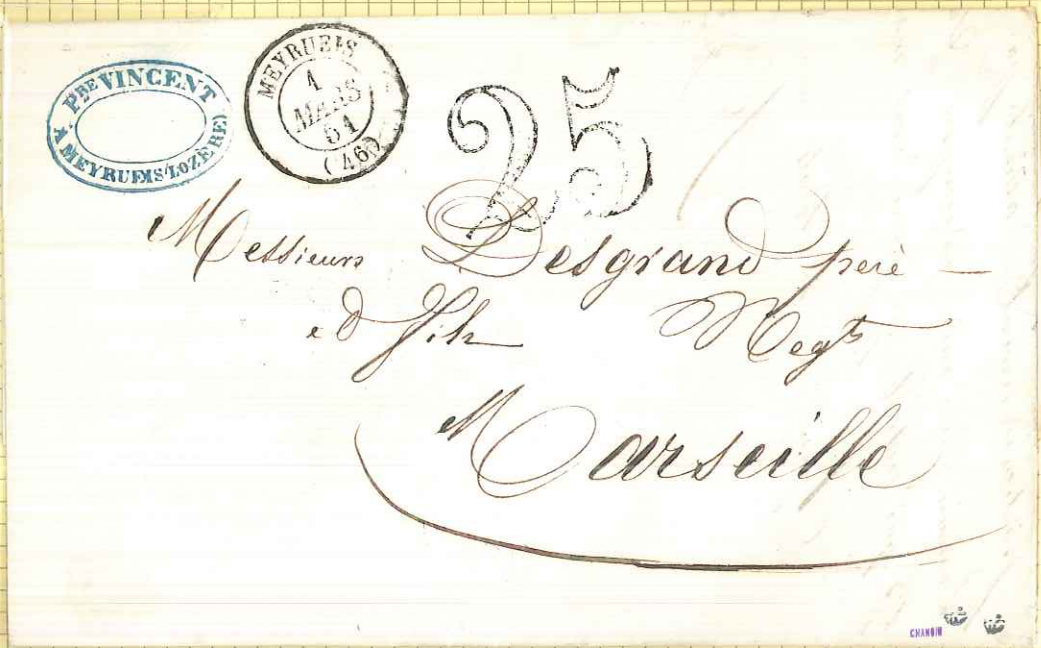 PRE VINCENT
A MEYRUEIS (LOZÈRE)
MEYRUEIS
1
MARS
51
(46)
25
Messieurs Desgrand père
et fils Negts
Marseille
CHANOIN